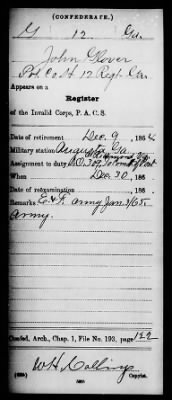 (CONFEDERATE.)
G 12 Ga.
John Glover
Pvt. Co. H, 12 Regt. Ga.
Appears on a
Register
of the Invalid Corps, P. A. C. S.
Date of retirement Dec. 9, 1864
Military station Augusta Ga.
Assignment to duty
When Dec. 30, 186
Date of reexamination , 186 .
Remarks Army Jan 3/65
Army.
Confed. Arch., Chap. 1, File No. 193, page 122
W H Collins
Copyist.